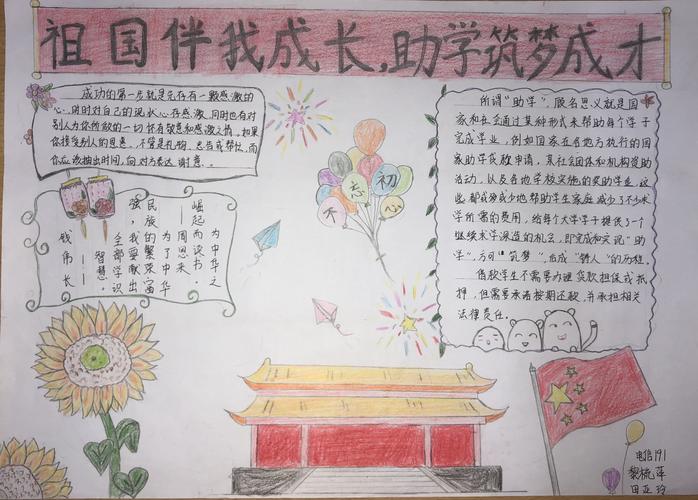 祖国伴我成长,助学筑梦成才
成功的第一步就是先存有一颗感激的
心,时时对自己的现状心存感激,同时也要对
别人为你所做的一切怀有敬意和感激之情。如果
你接受别人的恩惠,不管是礼物、忠告或帮忙,而
你应该抽出时间,向对方表达谢意。
为中华之
崛起而读书。
——周恩来
为了中华
民族的繁荣富
强,我要献出
全部学识
智慧。
——
钱伟长
不忘初心
所谓“助学”,顾名思义就是国
家和社会通过某种形式来帮助每个学子
完成学业,例如国家在各地方执行的国
家助学贷款申请,某社会团体和机构资助
活动,以及各地学校实施的奖助学业,这
些都或多或少地帮助学生家庭减少了不少求
学所需的费用,给每个大学学子提供了一个
继续求学深造的机会,即完成和实现“助
学”,方可“筑梦”,后成“铸人”的历程。
借款学生不需要办理贷款担保或抵
押,但需要承诺按期还款,并承担相关
法律责任。
电信191
黎梳萍
田正玲